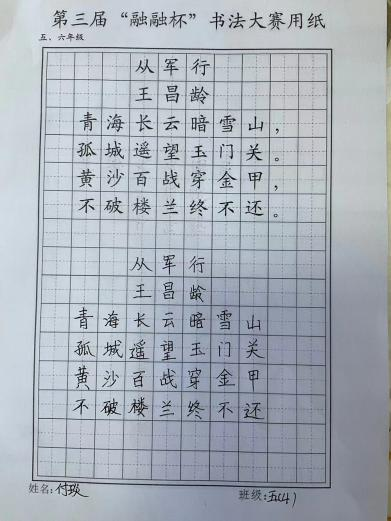 第三届“融融杯”书法大赛用纸
五、六年级
从军行
王昌龄
青海长云暗雪山，
孤城遥望玉门关。
黄沙百战穿金甲，
不破楼兰终不还。
从军行
王昌龄
青海长云暗雪山
孤城遥望玉门关
黄沙百战穿金甲
不破楼兰终不还
姓名：付琰 班级：五(4)